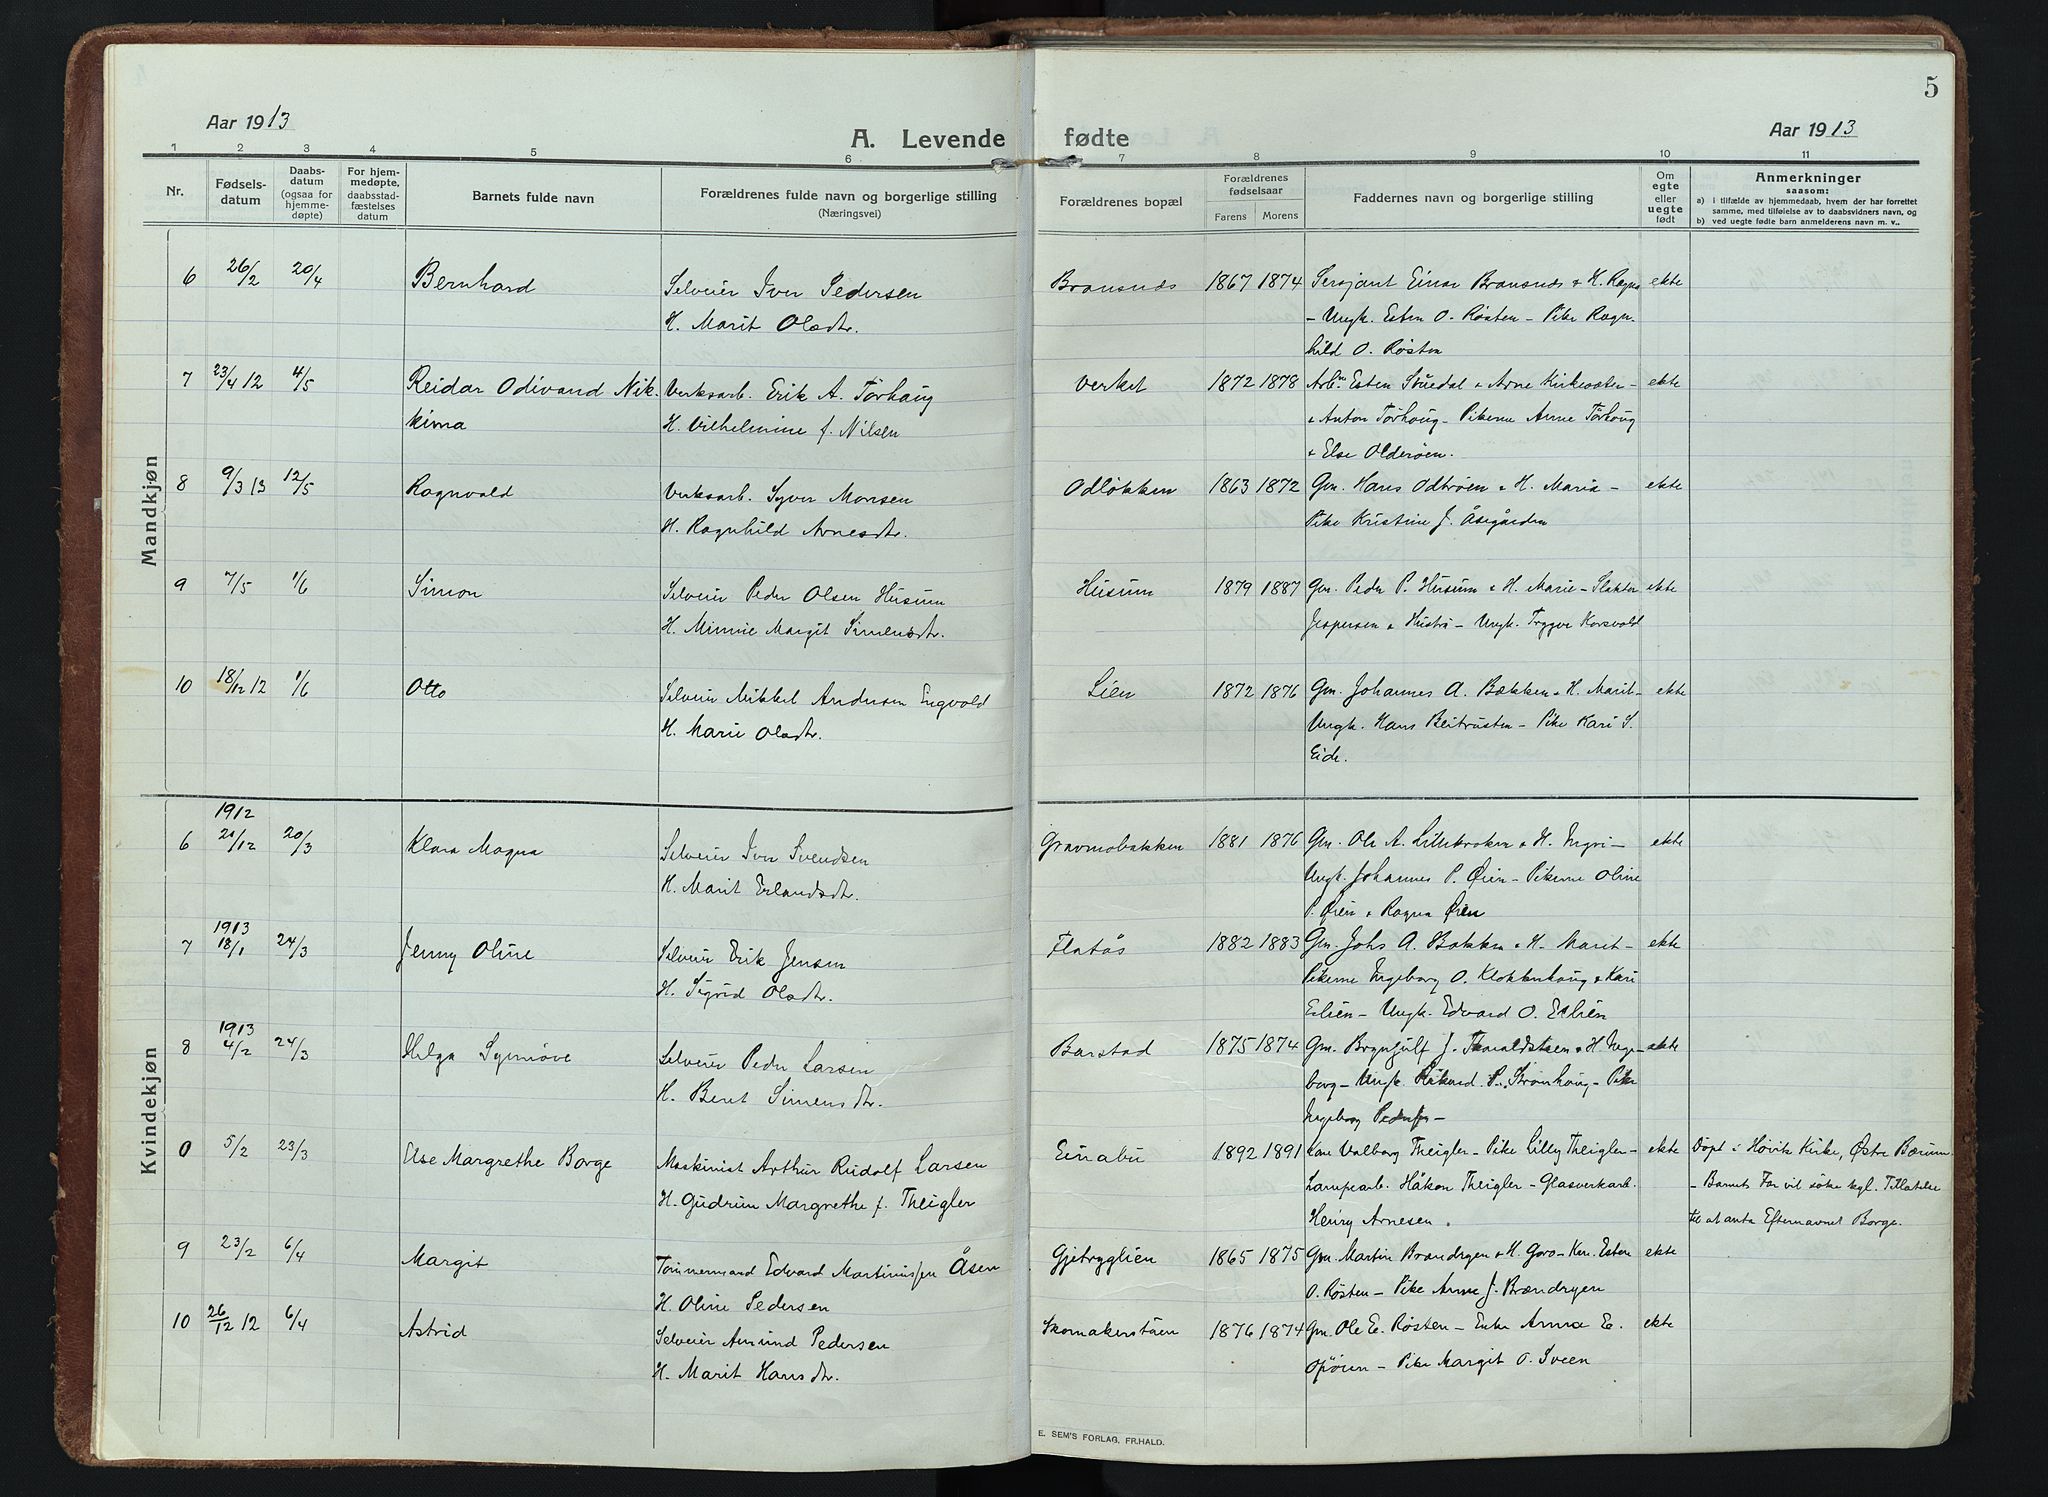 5
Aar 1913
A. Levende fødte
Aar 1913
1 2 3 4 5 6 7 8 9 10 11
Nr.
Fødselsdatum
Daabsdatum (ogsaa for hjemmedøpte)
For hjemmedøpte, daabsstadfæstelses datum
Barnets fulde navn
Forældrenes fulde navn og borgerlige stilling
(Næringsvei)
Forældrenes bopæl
Forældrenes fødselsaar
Farens Morens
Faddernes navn og borgerlige stilling
Om egte eller uegte født
Anmerkninger
saasom:
a) i tilfælde av hjemmedaab, hvem der har forrettet
samme, med tilføielse av to daabsvidners navn, og
b) ved uegte fødte barn anmelderens navn m. v..
Mandkjøn
6 26/2 20/4 Bernhard Selveier Iver Pedersen Bransnes 1867 1874 Sersjant Einar Bransnes & H. Ragna ekte
H. Marit Olsdtr. – Ungk. Esten O. Røsten – Pike Ragn-
hild O. Røsten
7 23/4 12 4/5 Reidar Odivand Nik- Verksarb. Erik A. Törhaug Verket 1872 1878 Arb. Esten & Arne Kirkvoeten – ekte
kima H. Vilhelmine f. Nilsen & Anton Törhoug – Pikerne Anne Törhoug
& Else Olderøen.
8 9/3 13 12/5 Ragnvald Verksarb. Syver Monsen Odløkken 1863 1872 Gm. Hans Odtrøen & H. Maria – ekte
H. Ragnhild Arnesdtr. Pike Kristine J. Åsegården
9 7/5 1/6 Simon Selveier Peder Olsen Husum Husum 1879 1887 Gm. Peder P. Husum & H. Marie – Slakter ekte
H. Minnie Margit Simensdtr. Jespersen & Hustru – Ungk. Trygve Korsvold
10 18/12 12 1/6 Otto Selveier Mikkel Andersen Engvold Lien 1872 1876 Gm. Johannes A. Bækken & H. Marit – ekte
H. Marie Olsdtr. Ungk. Hans Beitrusten – Pike Kari S.
Eide.
Kvindekjøn
1912
6 20/12 20/3 Klara Magna Selveier Iver Svendsen Gravmobakken 1881 1876 Gm. Ole A. Lillekroken & H. Ingri – ekte
H. Marit Erlandsdtr. Ungk. Johannes P. Øien – Pikerne Oline
P. Øien & Ragna Øien
1913
7 18/1 24/3 Jenny Oline Selveier Erik Jensen Flatås 1882 1883 Gm. Johs A. Bakken & H. Marit – ekte
H. Sigrid Olsdtr. Pikerne Ingeborg O. Klokkerhaug & Kari
Eslien – Ungk. Edvard O. Eslien
1913
8 4/2 24/3 Helga Synnøve Selveier Peder Larsen Barstad 1875 1874 Gm. Brynjulf J. Tharaldsteen & H. Inge- ekte
H. Berit Simensdtr. borg – Ungk. Rikard P. Strømhoug – Pike
Ingeborg Peders –
0 5/2 23/3 Else Margrethe Borge Maskinist Arthur Rudolf Larsen Einabu 1892 1891 Kone Valborg Theigler – Pike Lilly Theigler – ekte Døpt i Høvik Kirke, Østre Bærum
H. Gudrun Margrethe f. Theigler Lampearb. Håkon Theigler – Glasverkarb. – Barnets Far vil söke kgl. Tillatelse
Henry Arnesen. til at anta Efternavnet Borge.
9 23/2 6/4 Margit Tömmermand Edvard Martinussen Åsen Gjetrygglien 1865 1875 Gm. Martin Brændryen & H. Goro – Kar. Esten ekte
H. Oline Pedersen O. Røsten – Pike Anne J. Brændryen
10 26/12 12 6/4 Astrid Selveier Amund Pedersen Skomakerstuen 1876 1874 Gm. Ole E. Røsten – Enke Anne E. ekte
H. Marit Hansdtr. Opøien – Pike Margit O. Sveen
E. SEM'S FORLAG, FR.HALD.